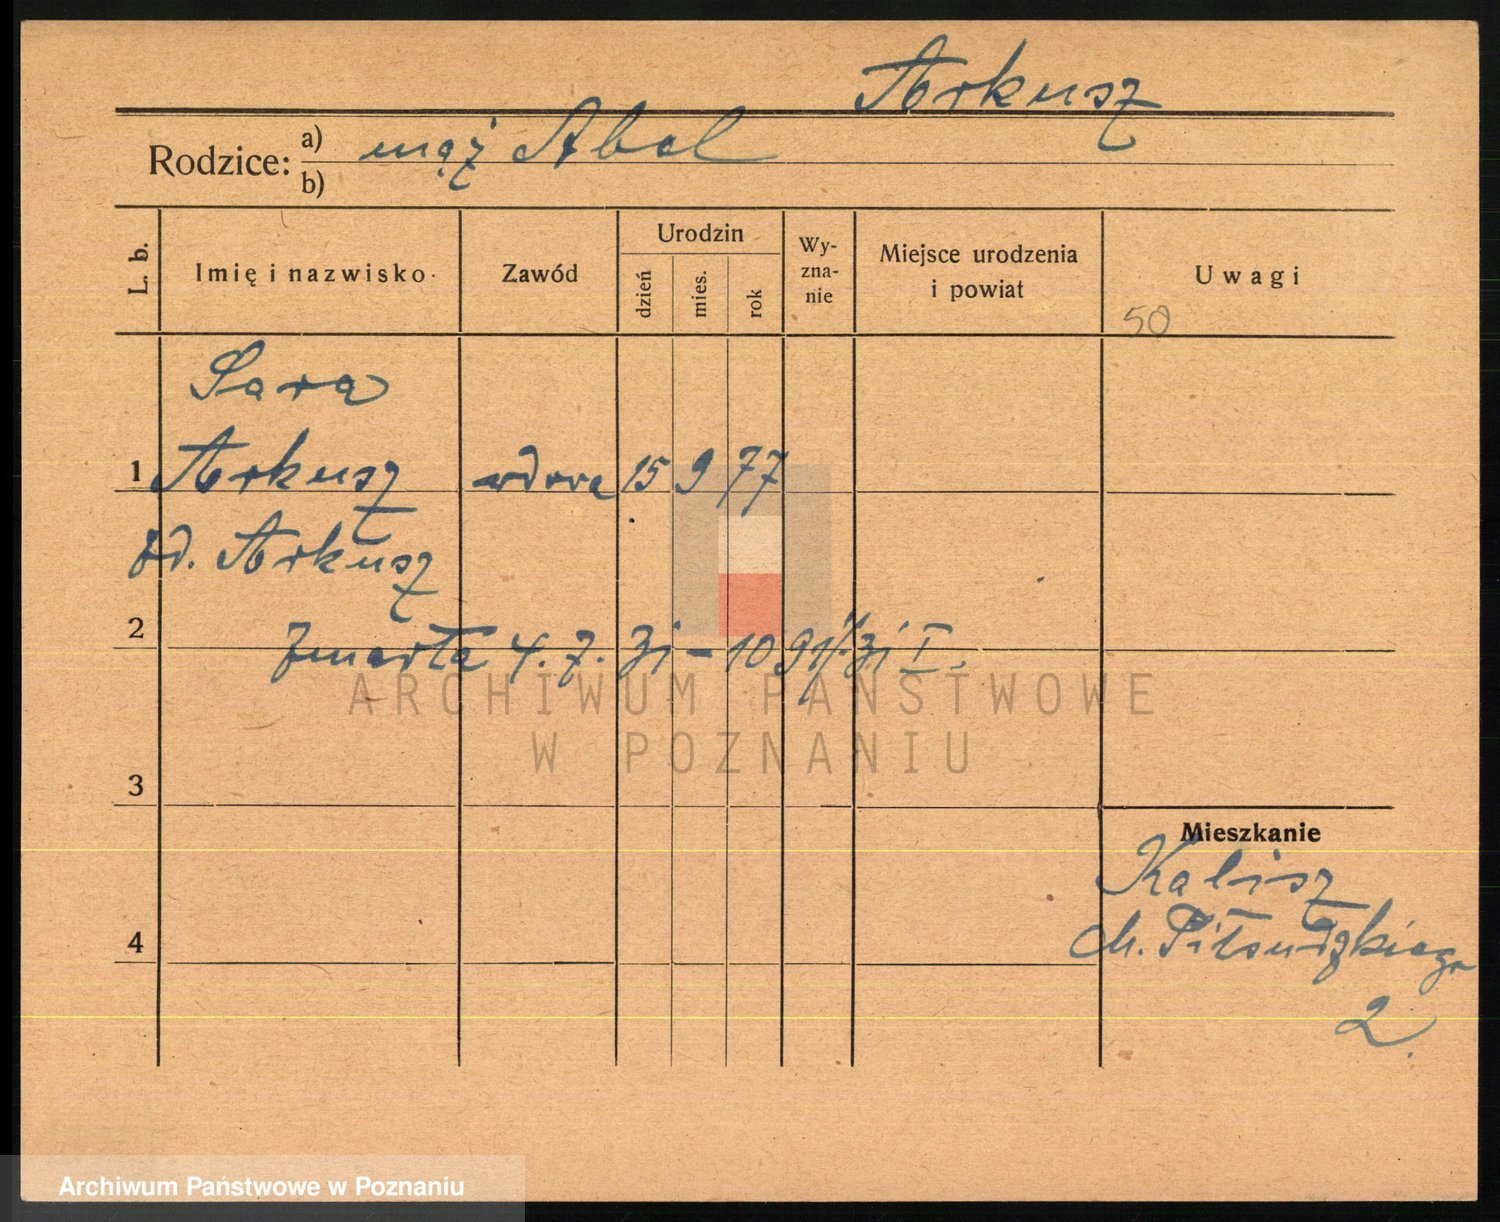 Arkusz
Rodzice: a) mąż Abel
b)
L. b.
Imię i nazwisko
Zawód
Urodzin
dzień
mies.
rok
Wy-
zna-
nie
Miejsce urodzenia
i powiat
Uwagi
50
Sara
1 Arkusz wdowa 15 9 77
zd. Arkusz
2
Zmarła 4. 7. 31 - 10 91/31 I.
ARCHIWUM PAŃSTWOWE
W POZNANIU
3
Mieszkanie
Kalisz
4
Piłsudzkiego
2.
Archiwum Państwowe w Poznaniu